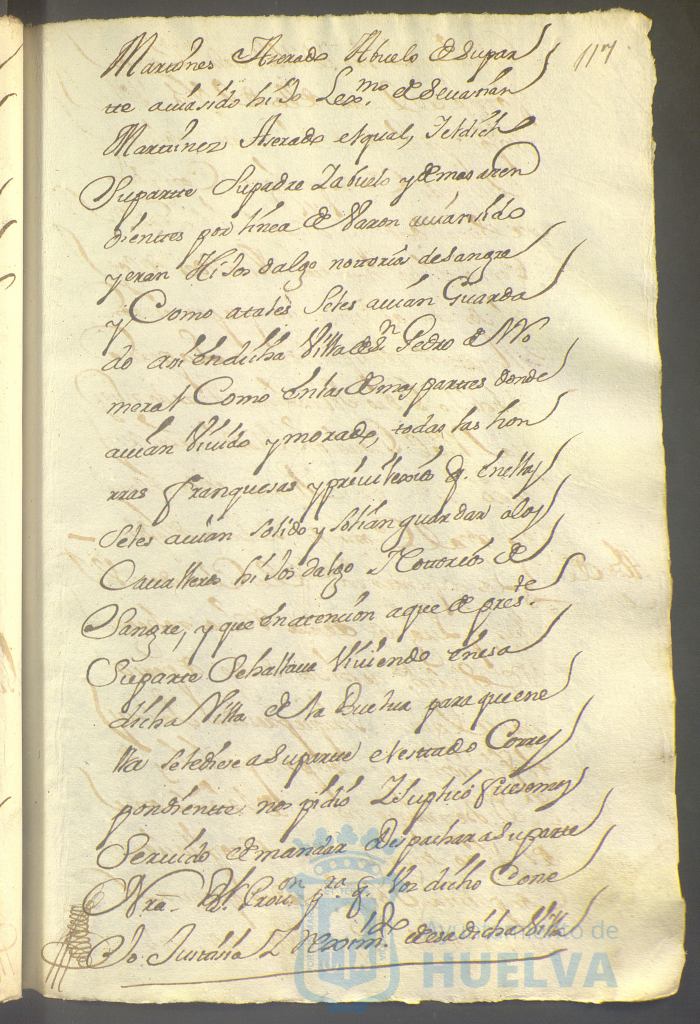 117
Martines Aserado Abuelo de Supar
tte auia sido hiJo Lexmo. de Seuastian
Martinez Aserado el qual, Y el dicho
Suparte Supadre Y abuelo y demas asen
dientes por linea de Varon auian sido
y eran HiJos dalgo notorios de sangre
y Como atales Seles auian Guarda
do asi en dicha Villa de Sn Pedro de No
moral Como en las demas partes donde
auian Viuido y morado, todas las hon
rras franquesas y preuilexios q. en ellas
Seles auian solido y solian guardar alos
Caualleros hiJos dalgo Notorios de
Sangre, y que en atencion aque de preste.
Suparte Se hallaua Viuiendo en esa
dicha Villa de la Huelua para que en e
lla sele diese a Suparte el estado Corres
pondiente nos pidio Y Suplico fuesemos
Seruido de mandar despachar a Suparte
Nra. Rl. Prouon. pra. q. Vos dicho Conse
Jo Justisia Y Reximto. de esa dicha Villa
Ayuntamiento de
HUELVA